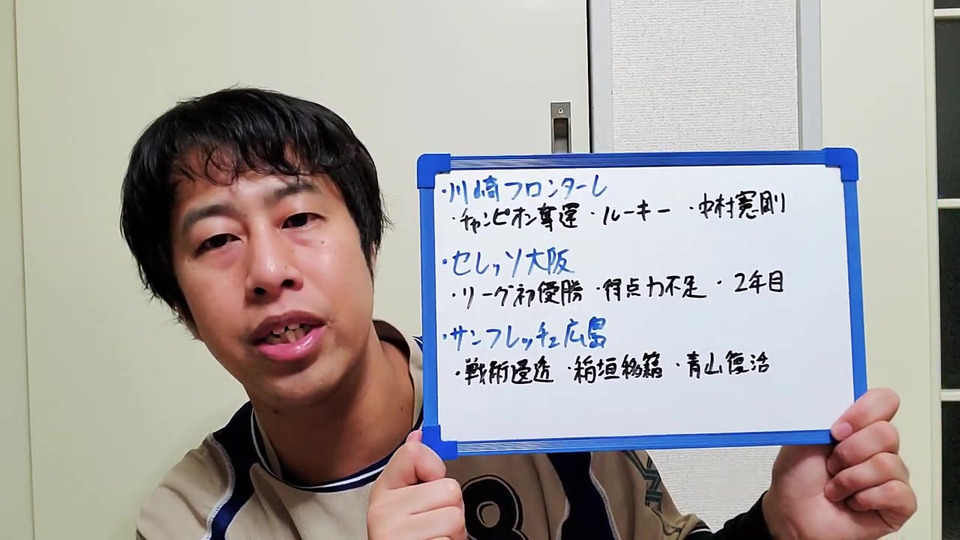 ・川崎フロンターレ
・チャンピオン奪還・ルーキー・中村憲剛
・セレッソ大阪
・リーグ初優勝・得点力不足・2年目
・サンフレッチェ広島
・戦術浸透・稲垣移籍・青山復活